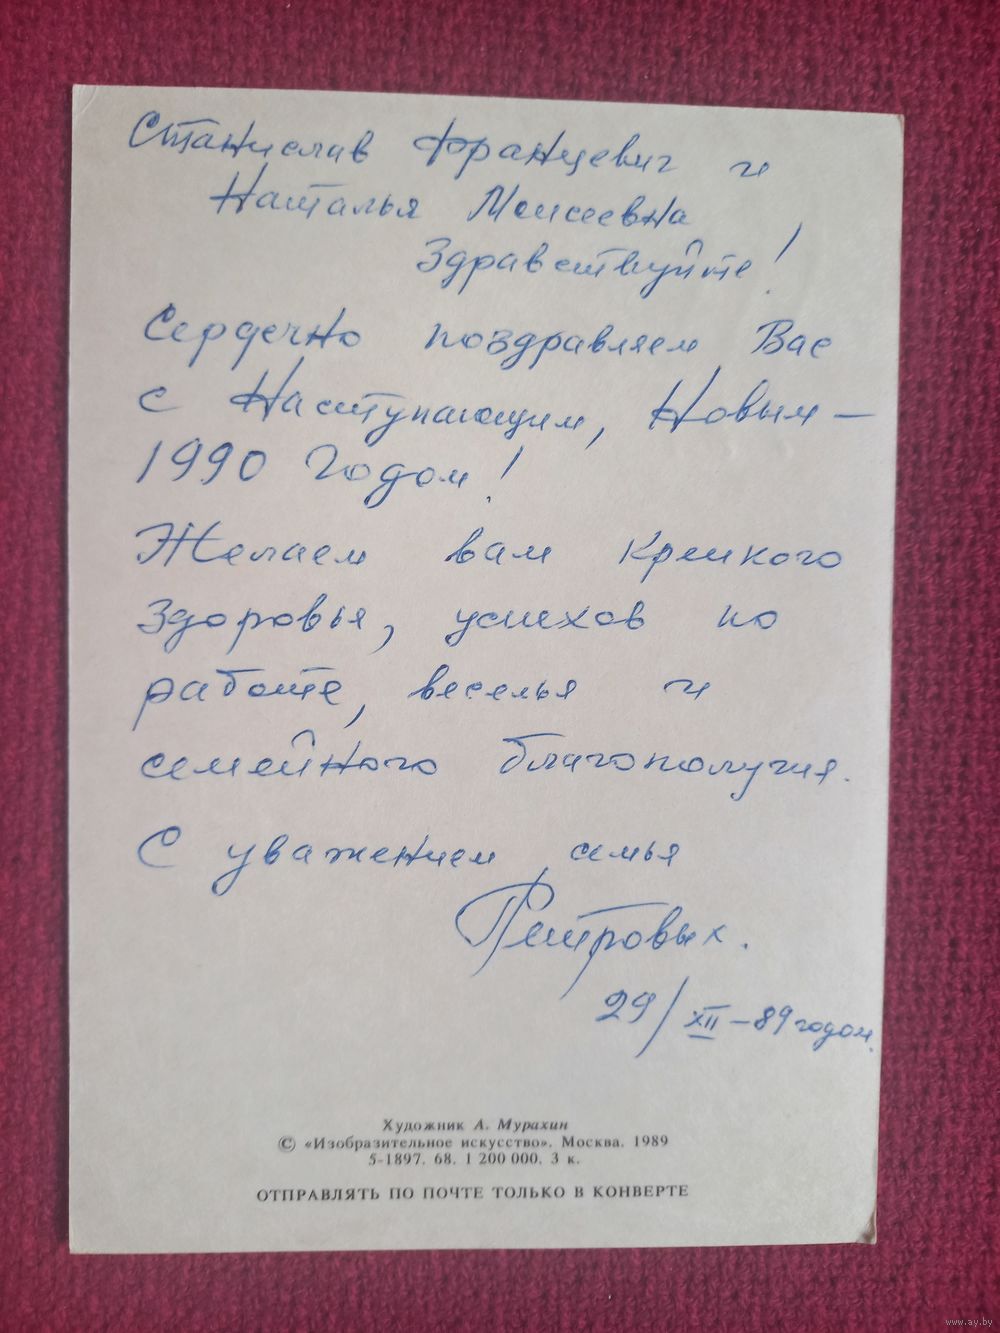 Станислав Францевич и
Наталья Моисеевна
Здравствуйте!
Сердечно поздравляем Вас
с Наступающим, Новым –
1990 Годом!
Желаем вам крепкого
здоровья, успехов по
работе, веселья и
семейного благополучия.
С уважением семья
Петровых.
29/XII – 89 годом.
Художник А. Мурахин
© «Изобразительное искусство». Москва. 1989
5-1897. 68. 1 200 000. 3 к.
ОТПРАВЛЯТЬ ПО ПОЧТЕ ТОЛЬКО В КОНВЕРТЕ
www.ay.by